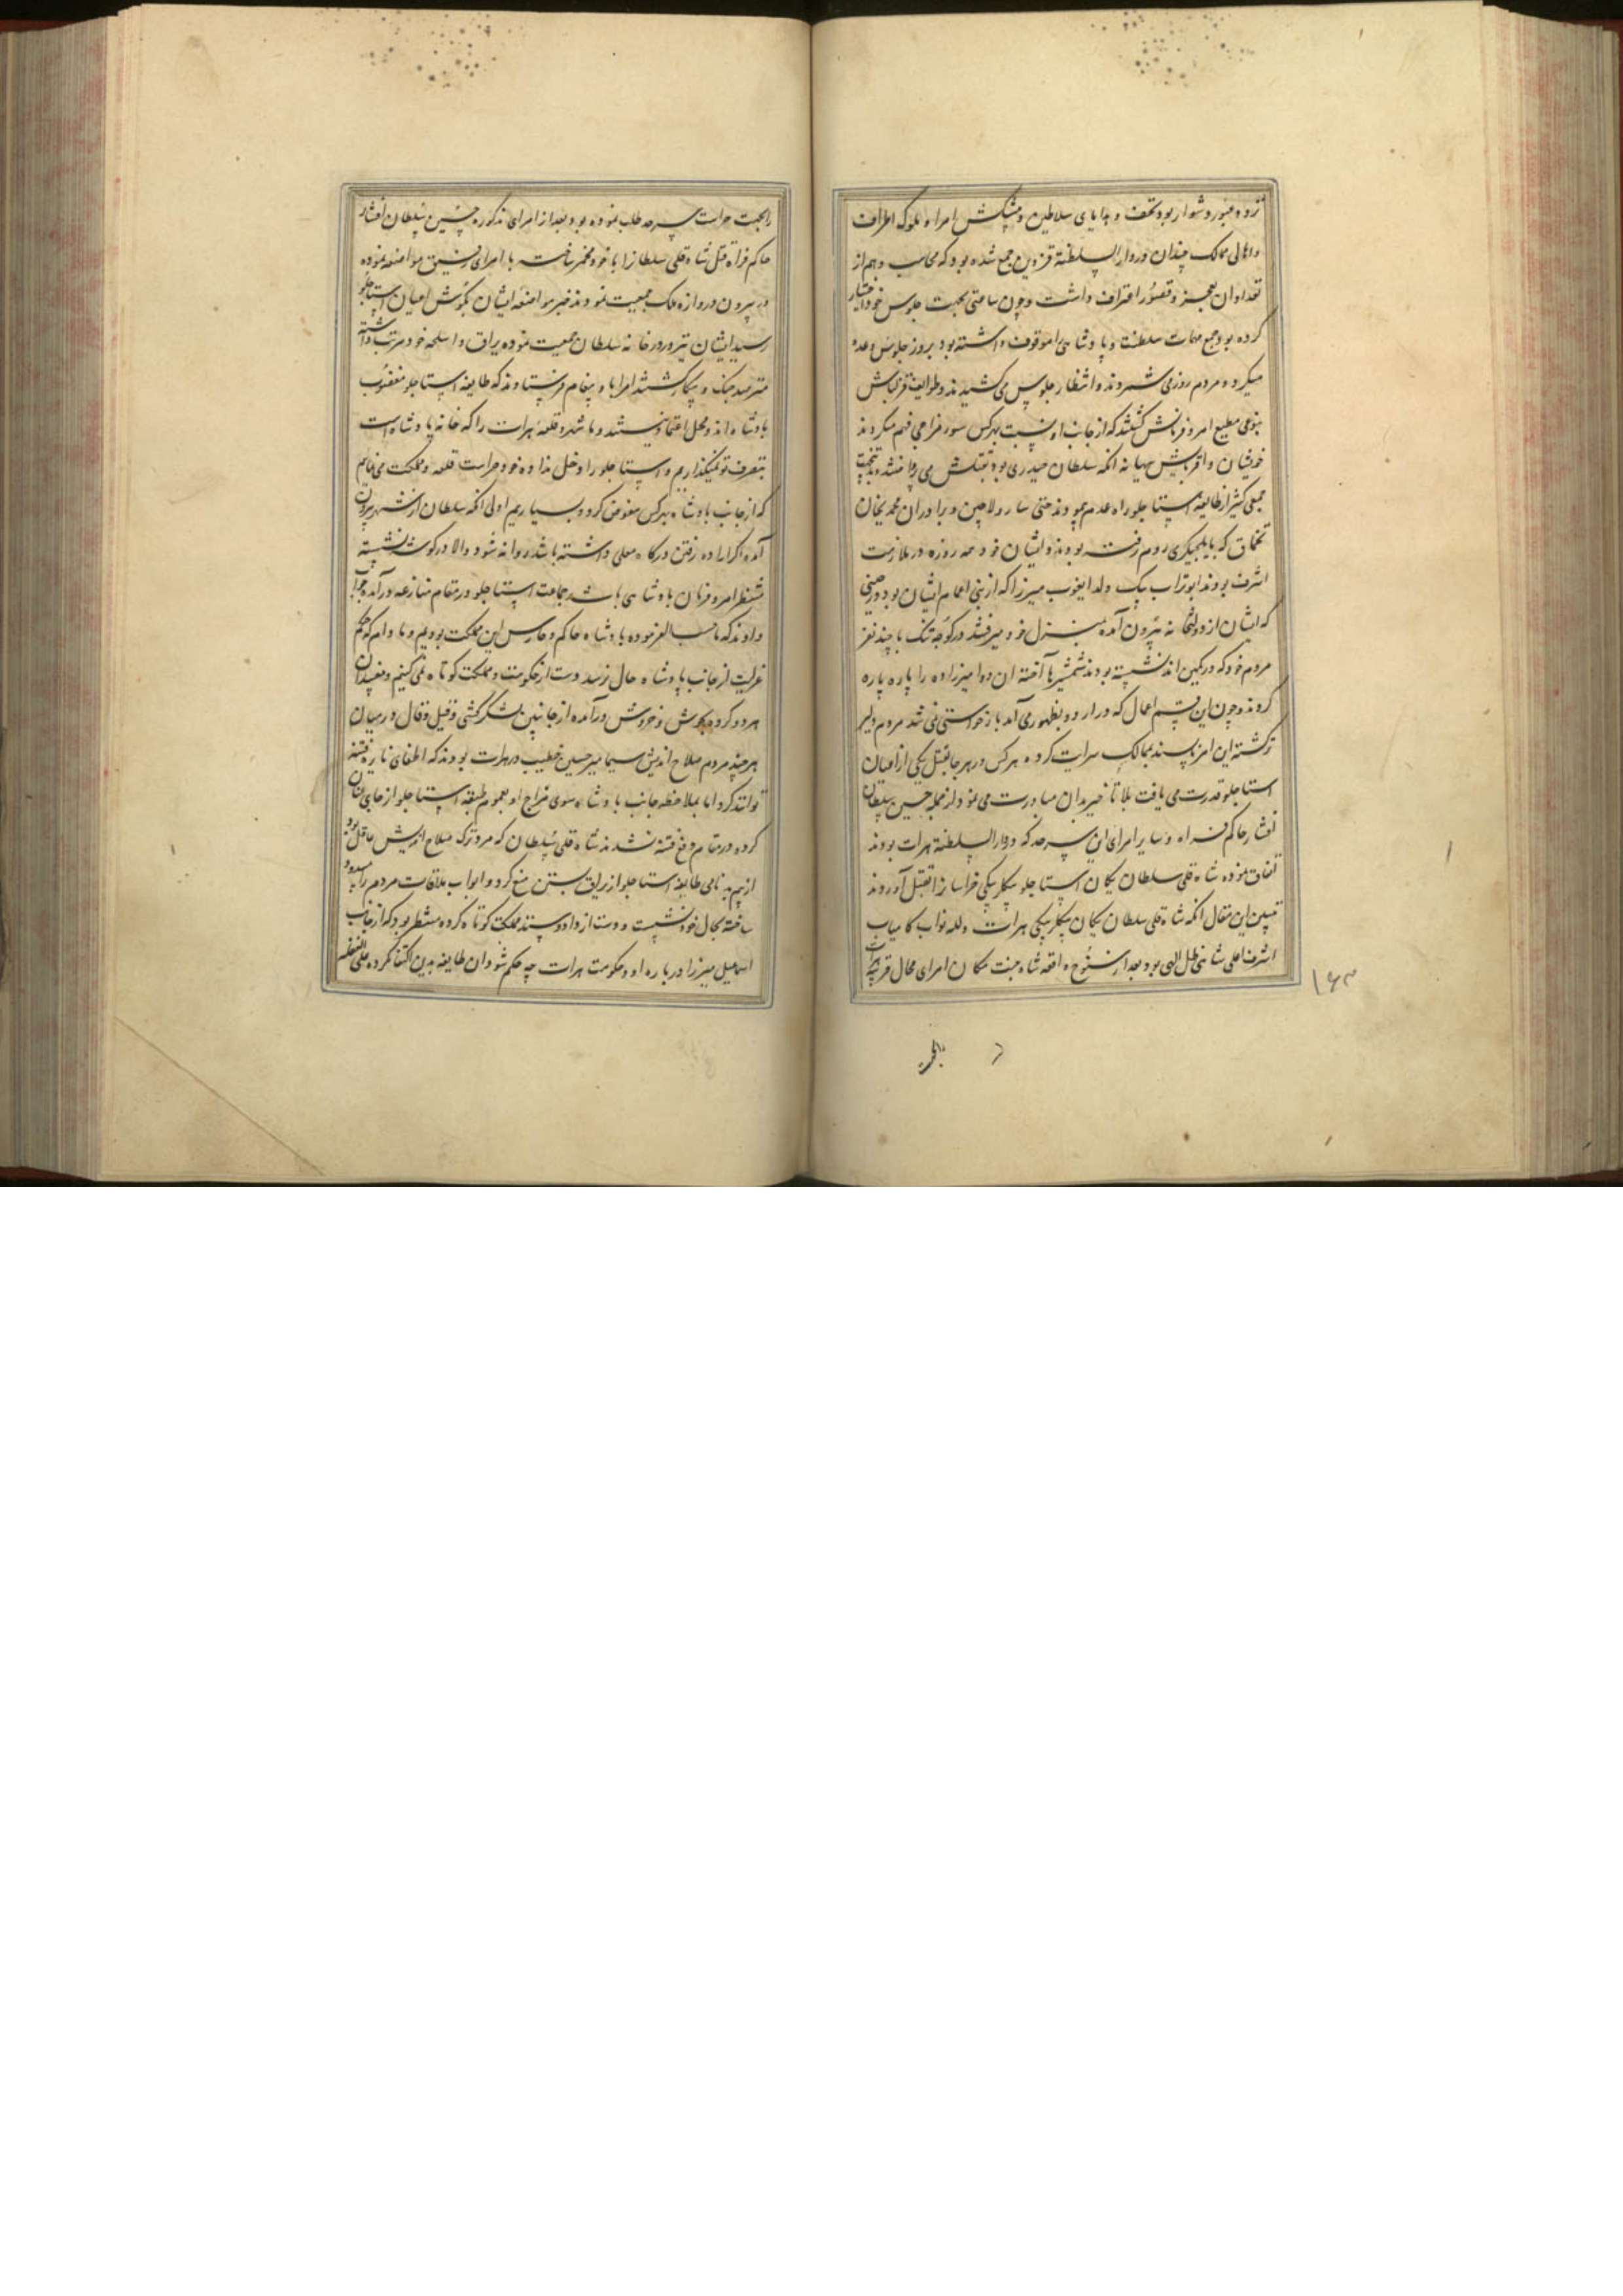 تردد و عبور دشوار بود و تحف و هدایای سلاطین و پیشکش امراء ملوک اطراف
و اهالی ممالک چندان در دار السلطنة قزوین جمع شده بود که محاسب وهم از
تعداد ان بعجز و قصور اعتراف داشت و چون ساعتی بجهت جلوس خود اختیار
کرده بود جمیع مهمات سلطنت و پادشاهی را موقوف داشته بود بروز جلوس وعده
میکرد و مردم روز می شمردند و انتظار جلوس می کشیدند و طوایف قزلباش
بنوعی مطیع امر و فرمانش گشتند که از جانب او نسبت بهرکس سوء مزاجی فهم میکردند
خویشان و اقربایش ببهانه انکه سلطان حیدری بود بقتلش می پرداختند و بدین جهت
جمعی کثیر از طایفه استاجلو راه عدم پیمودند حتی سارو لاچین و برادران محمدیخان
تخماق که بایلچیکری روم رفته بودند و ایشان خود همه روزه در ملازمت
اشرف بودند ابوتراب بیک ولد ایغوب میرزا که از بنی اعمام ایشان بود در حینی
که ایشان از دولتخانه بیرون آمده بمنزل خود میرفتند در کوچه تنک با چند نفر
مردم خود که در کمین نشسته بودند شمشیرها آخته ان دو امیرزاده را پاره پاره
کردند و چون این قسم اعمال که در اردو بظهور می آمد بازخواستی نمی شد مردم دلیر
تر گشته این امر ناپسند بممالک سرایت کرده هرکس در هر جا بقتل یکی از اعیان
استاجلو قدرت می یافت بلا تاخیر بدان مبادرت می نمود از جمله حسین سلطان
افشار حاکم فراه و سایر امرای ان سرحد که در دار السلطنة هرات بودند
اتفاق نموده شاه قلی سلطان یکان استاجلو بیکلربیکی خراسانرا بقتل آوردند
تبیین این مقال انکه شاه قلی سلطان یکان بیکلربیکی هرات و لله نواب کامیاب
اشرف اعلی شاهی ظل الهی بود بعد از سنوح واقعه شاه جنت مکان امرای محال قریبه هرات
۱۶۳
را بجهت حراست سرحد طلب نموده بود بعد از امرای مذکوره حسین سلطان افشار
حاکم فراه قتل شاه قلی سلطانرا با خود مخمر ساخته با امرای رفیق مواضعه نموده
در بیرون دروازه ملک جمعیت نمودند خبر مواضعه ایشان بکوش اعیان استاجلو
رسید ایشان نیز در در خانه سلطان جمعیت نموده یراق و اسلحه خود مرتب داشته
مترصد جنک و پیکار گشتند امرا باو پیغام فرستادند که طایفه استاجلو مغضوب
پادشاه اند و محل اعتماد نیستند و ما شهر و قلعه هرات را که خانه پادشاه است
بتصرف تو نمیگذاریم و استاجلو را دخل نداده خود حراست قلعه و مملکت می نمایم
که از جانب پادشاه بهرکس مفوض کردد بسپاریم اولی انکه سلطان از شهر بیرون
آمده اگر اراده رفتن درگاه معلی داشته باشد روانه شود والا در گوشه نشسته
منتظر امر و فرمان پادشاهی باشد جماعت استاجلو در مقام منازعه درآمده جواب
دادند که ما حسب الفرموده پادشاه حاکم و حارس این مملکت بودیم و مادام که حکم
عزلیت از جانب پادشاه حال نرسد دست از حکومت و مملکت کوتاه نمی کنیم و مفسدان
هر دو گروه بجوش و خروش درآمده از جانبین لشکرکشی و قیل و قال در میان
هرچند مردم صلاح اندیش سیما میر حسین خطیب در هرات بودند که اطفای نایره فتنه
توانند کرد اما بملاحظه جانب پادشاه و سوی مزاج او بعموم طبقه استاجلو از جای
کرده در مقام دفع فتنه نشدند شاه قلی سلطان که مرد ترک صلاح اندیش عاقل بود
از بیم بدنامی طایفه استاجلو از یراق بستن منع کرد و ابواب ملاقات مردم را مسدود
ساخته بحال خود نشست و دست از داد و ستد مملکت کوتاه کرده منتظر بود که از جانب
اسماعیل میرزا در باره او و حکومت هرات چه حکم شود ان طایفه بدین اکتفا نکرده علی الغفله